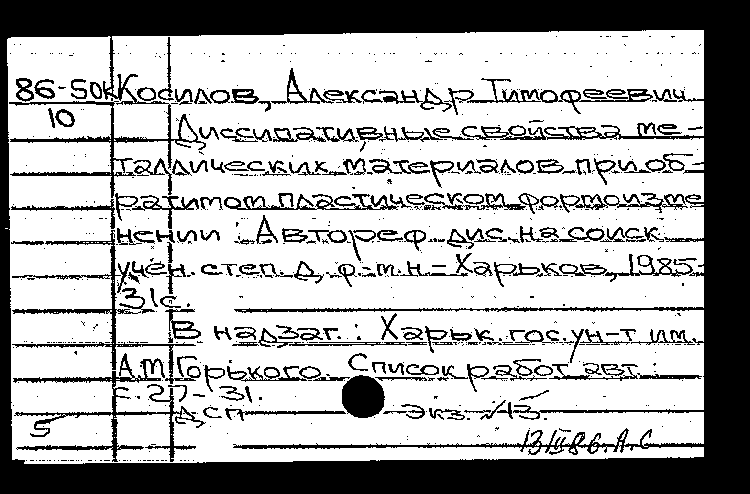 86-50к Косилов, Александр Тимофеевич
10
Диссипативные свойства ме-
таллических материалов при об-
ратимом пластическом формоизме
нении : Автореф. дис. на соиск.
учен. степ. д. ф.-м.н. - Харьков, 1985.-
31с.
В надзаг. : Харьк. гос. ун-т им.
А.М. Горького. Список работ авт. :
с. 27-31.
ДСП Экз. №13.
5
13 III 86. А.С